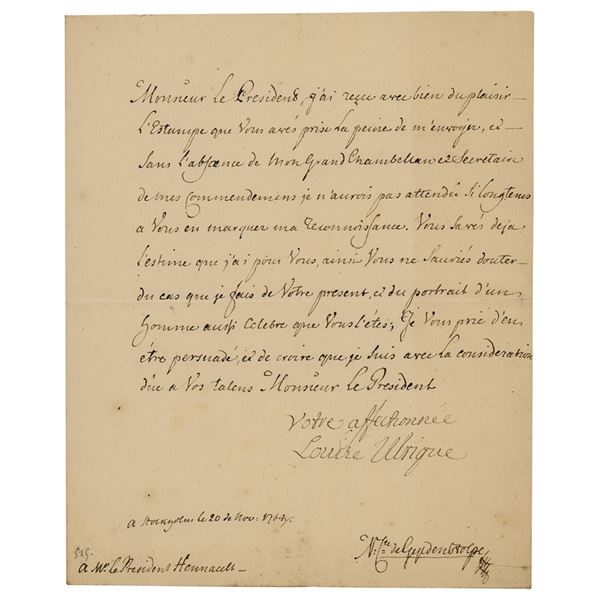 Monsieur Le President, j'ai recu avec bien du plaisir
L'Estampe que Vous avés prise La peine de m'envoyer, et
Sans L'absence de Mon Grand Chambellan et Secretaire
de mes Commendemens je n'aurois pas attendû Si longtems
a Vous en marquer ma reconnoissance. Vous Savés deja
L'estime que j'ai pour Vous, ainsi Vous ne Sauriés douter
du cas que je fais de Votre present, et du portrait d'un
homme aussi Celebre que Vous L'étes; Je Vous prie d'en
étre persuadé, et de croire que je Suis avec la consideration
düe a Vos talens Monsieur Le President
Votre affectionnée
Louise Ulrique
a Stockholm le 20 de Nov. 1764.
N: C:te de Gyldenstolpe
525.
a Mr. le President Hennault